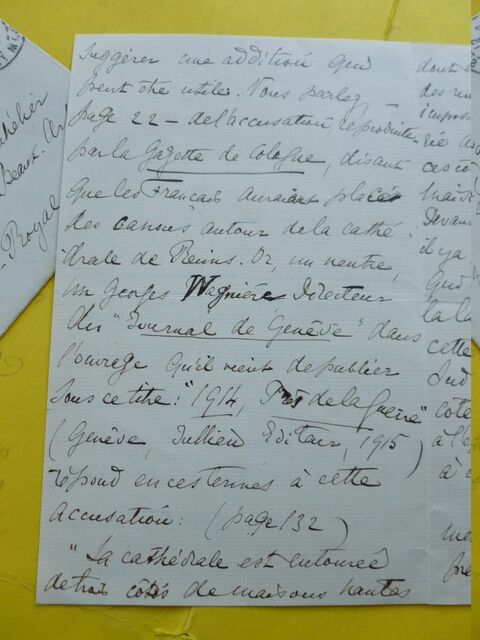 suggérer une addition qui
peut être utile. Vous parlez -
page 22 - de l'accusation, reproduite
par la Gazette de Cologne, disant
que les Français auraient placés
des canons autour de la cathé-
drale de Reims. Or, un neutre,
Mr Georges Wagnière, Directeur
du "Journal de Genève" dans
l'ouvrage qu'il vient de publier
sous ce titre: "1914, Près de la guerre"
(Genève, Jullien Editeur, 1915)
répond en ces termes à cette
accusation: (page 132)
"La cathédrale est entourée
de trois côtés de maisons hautes
Beaux-Art
Royal
dont
des
impose
cette
il y a
que
la la
cette
Sud
cote
à l'e
à c